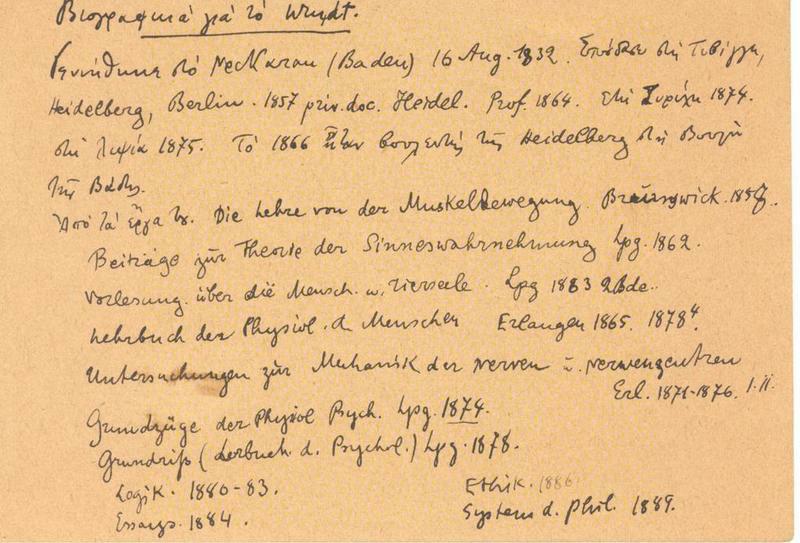 Βιογραφικά γιά τό Wundt.
Γεννήθηκε στό Neckarau (Baden) 16 Aug. 1832. Σπούδασε στή Τυβίγγη,
Heidelberg, Berlin. 1857 priv. doc. Heidel. Prof. 1864. στή Ζυρίχη 1874.
στή Λιψία 1875. Τό 1866 ἦταν βουλευτής τῆς Heidelberg στή Βουλή
τῆς Βάδης.
Ἀπό τά ἔργα του. Die Lehre von der Muskelbewegung. Braunswick. 1858.
Beiträge zur Theorie der Sinneswahrnehmung Lpg. 1862.
Vorlesung. über die Mensch. u. Tierseele. Lpg 1863 2Bde..
Lehrbuch der Physiol. d. Menschen Erlangen 1865. 1878⁴.
Untersuchungen zür Mechanik der Nerven ü. Nervenzentren
Erl. 1871-1876. I. II.
Grundzüge der Physiol Psych. Lpg. 1874.
Grundriß (Lerbuch d. Psychol.) Lpg. 1878.
Logik. 1880-83.
Ethik. 1886
Essays. 1884.
System d. Phil. 1889.